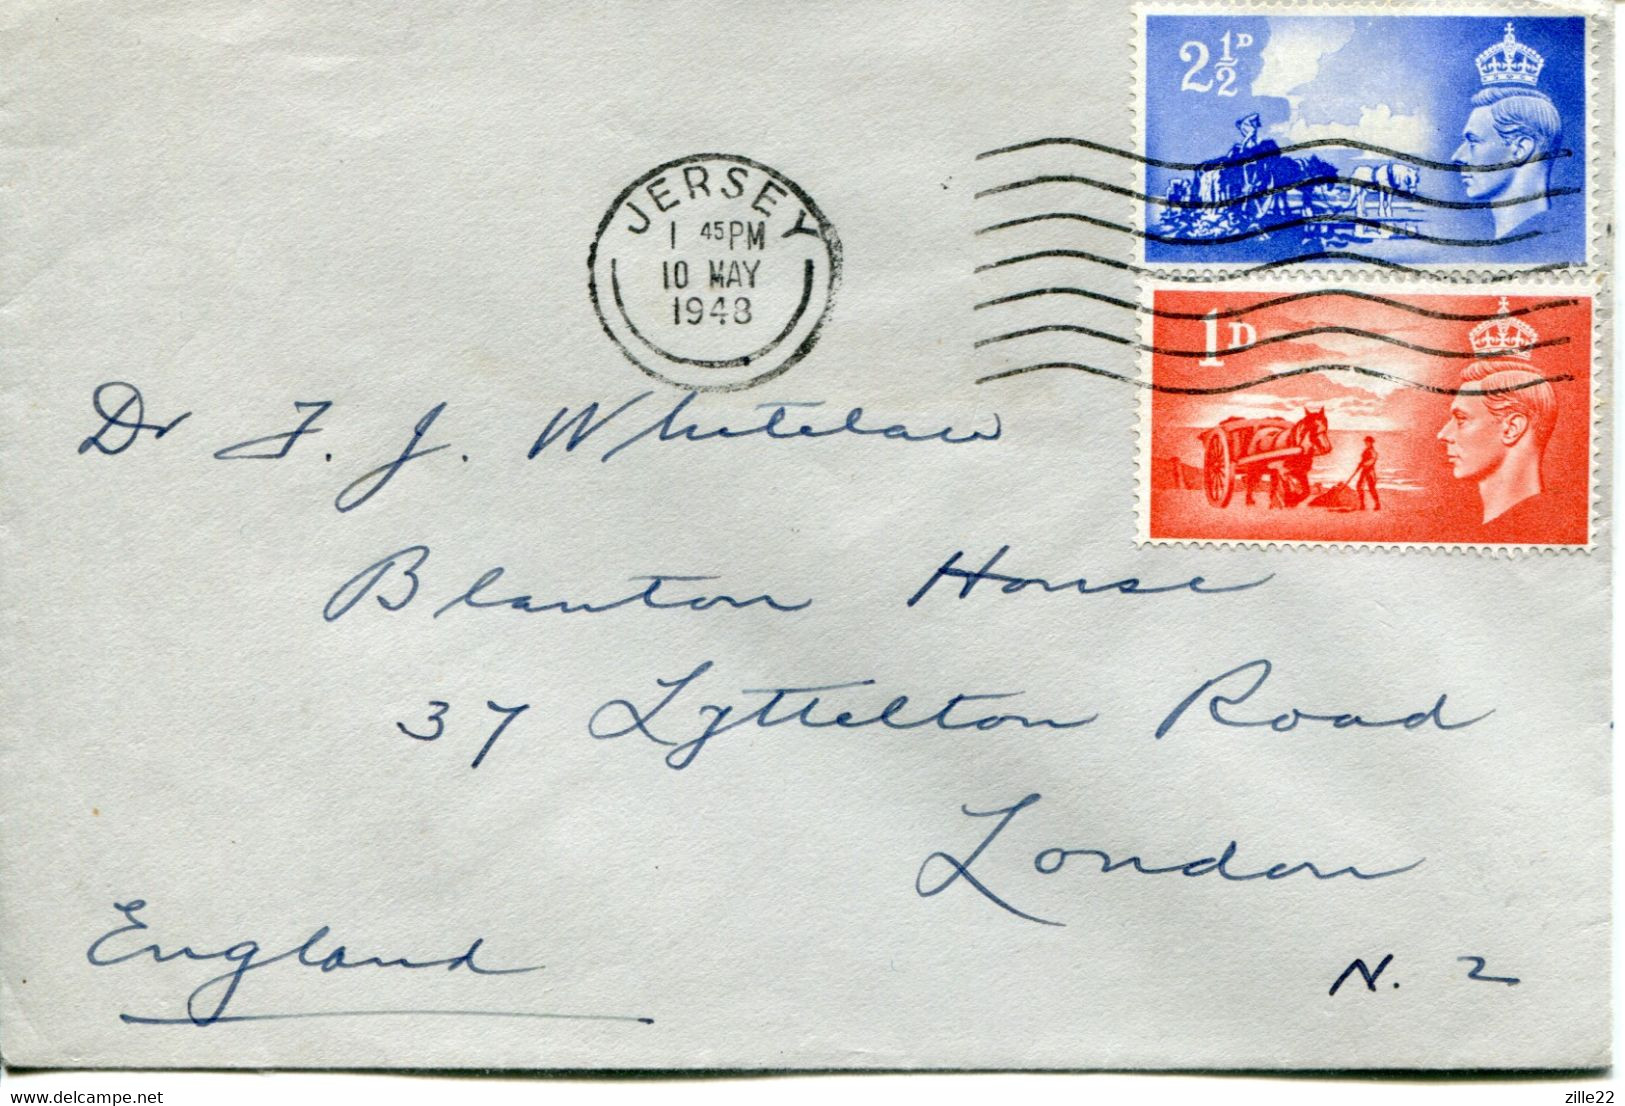 2½D
JERSEY
1 45PM
10 MAY
1948
1D
Dr F. J. Whitelaw
Blanton House
37 Lyttelton Road
London
England
N. 2
delcampe.net
zille22